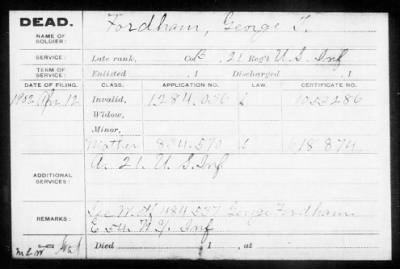 DEAD.
NAME OF SOLDIER:
Fordham, George T.
SERVICE:
Late rank, Co. 21 Reg't U.S. Inf
TERM OF SERVICE:
Enlisted , 1 Discharged , 1
DATE OF FILING. CLASS. APPLICATION NO. LAW. CERTIFICATE NO.
Apr. 12 Invalid, 1284.056
Widow,
Minor,
Mother 618874
ADDITIONAL SERVICES:
A. 21. U.S. Inf
REMARKS:
George Fordham
N.Y. Inf
Died , 1 , at